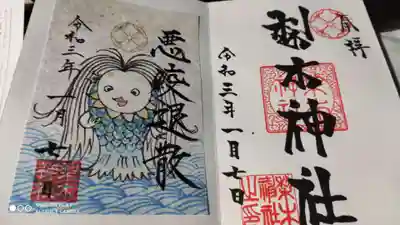 奉拝
梨木神社
令和三年一月七日
悪疫退散
令和三年一月七日